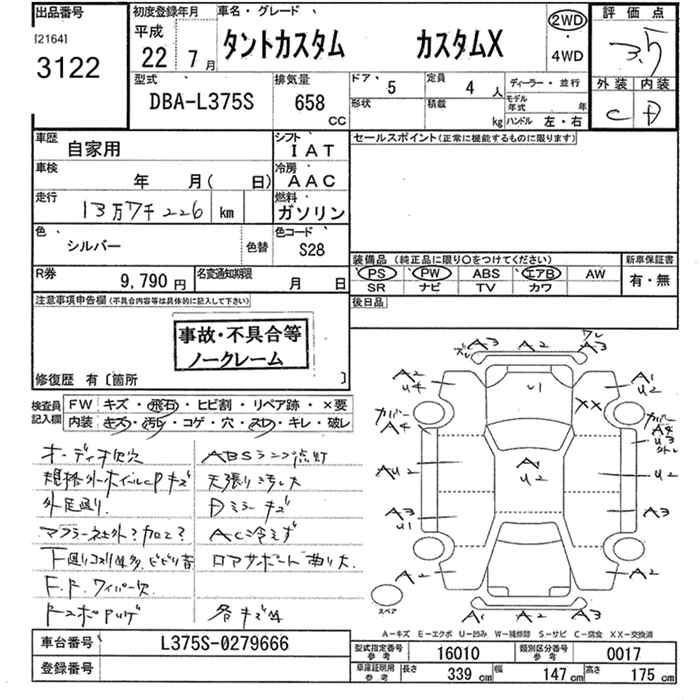 出品番号
[2164]
3122
初度登録年月
平成
22年 7月
車名・グレード
タントカスタム カスタムX
2WD
・
4WD
評価点
3.5
外装 内装
C D
型式
DBA-L375S
排気量
658
CC
ドア 5
形状
定員 4 人
積載 kg
ディーラー・並行
モデル年式 年
ハンドル 左・右
車歴 自家用
シフト IAT
車検 年 月( 日)
冷房 AAC
走行 13万7千226 km
燃料 ガソリン
色 シルバー 色替
色コード S28
R券 9,790円
名変通知期限 月 日
セールスポイント(正常に機能するものに限ります)
装備品(純正品に限り○をつけてください)
新車保証書
PS PW ABS エアB AW
有・無
SR ナビ TV カワ
後日品
注意事項申告欄(不具合内容等は具体的に記入して下さい)
事故・不具合等
ノークレーム
修復歴 有〔箇所 〕
検査員記入欄
FW キズ・飛石・ヒビ割・リペア跡・×要
内装 キズ・汚レ・コゲ・穴・スレ・キレ・破レ
オーディオ欠穴
ABSランプ点灯
規格外ホイルCPキズ
天張り汚レ大
外足廻り
Dミラーキズ
マフラー社外?加工?
AC冷えず
下廻りコスリ鈑多 ビビリ音
ロアサポート曲り大
F.R.ワイパー欠
各キズ
ズレ A3 A2 A3 ワレ
A2 U4
U1
A1 U2
XX
カバー A4
カバー A4
U3 外レ
AU2
A U2
A2
A3 U1
A3
A2
A2
スペア
A1 A2 A3
A-キズ E-エクボ U-凹み W-補修跡 S-サビ C-腐食 XX-交換済
車台番号 L375S-0279666
登録番号
型式指定番号 参考 16010
類別区分番号 参考 0017
車庫証明用 参考 長さ 339 cm 幅 147 cm 高さ 175 cm